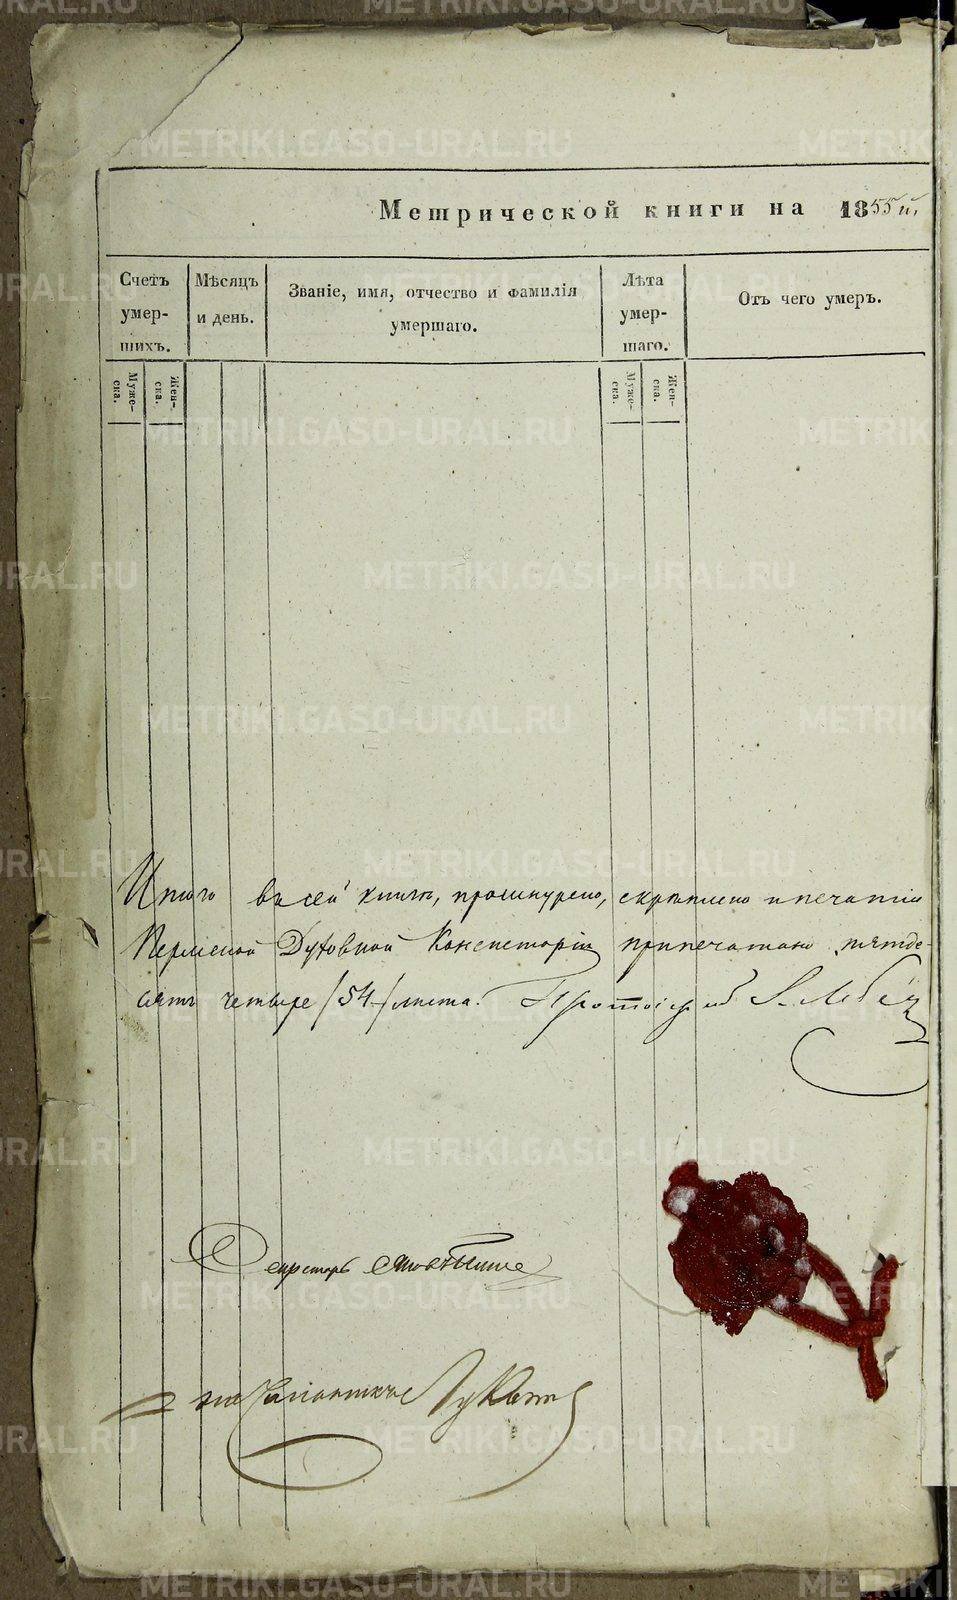 Метрической книги на 1855й,
Счетъ умер- шихъ.
Мѣсяцъ и день.
Званіе, имя, отчество и фамилія умершаго.
Лѣта умер- шаго.
Отъ чего умеръ.
Муже- ска.
Жен- ска.
Муже- ска.
Жен- ска.
Итого въ сей книгѣ, прошнурено, скрѣплено и печатію
Пермской Духовной Консисторіи припечатано пятьде-
сятъ четыре /54/ листа. Протоіерей
Секретарь
METRIKI.GASO-URAL.RU